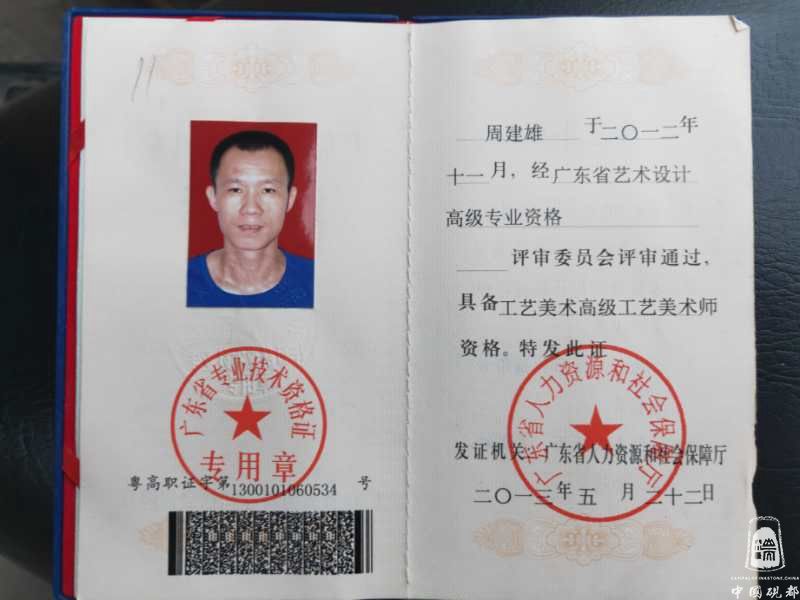 11
周建雄 于二〇一二年
十一月，经广东省艺术设计
高级专业资格
评审委员会评审通过，
具备工艺美术高级工艺美术师
资格。特发此证
广东省专业技术资格证
专用章
粤高职证字第1300101060534号
广东省人力资源和社会保障厅
发证机关：广东省人力资源和社会保障厅
二〇一三年五月二十二日
端
CAPITAL OF INKSTONE,CHINA
中国砚都